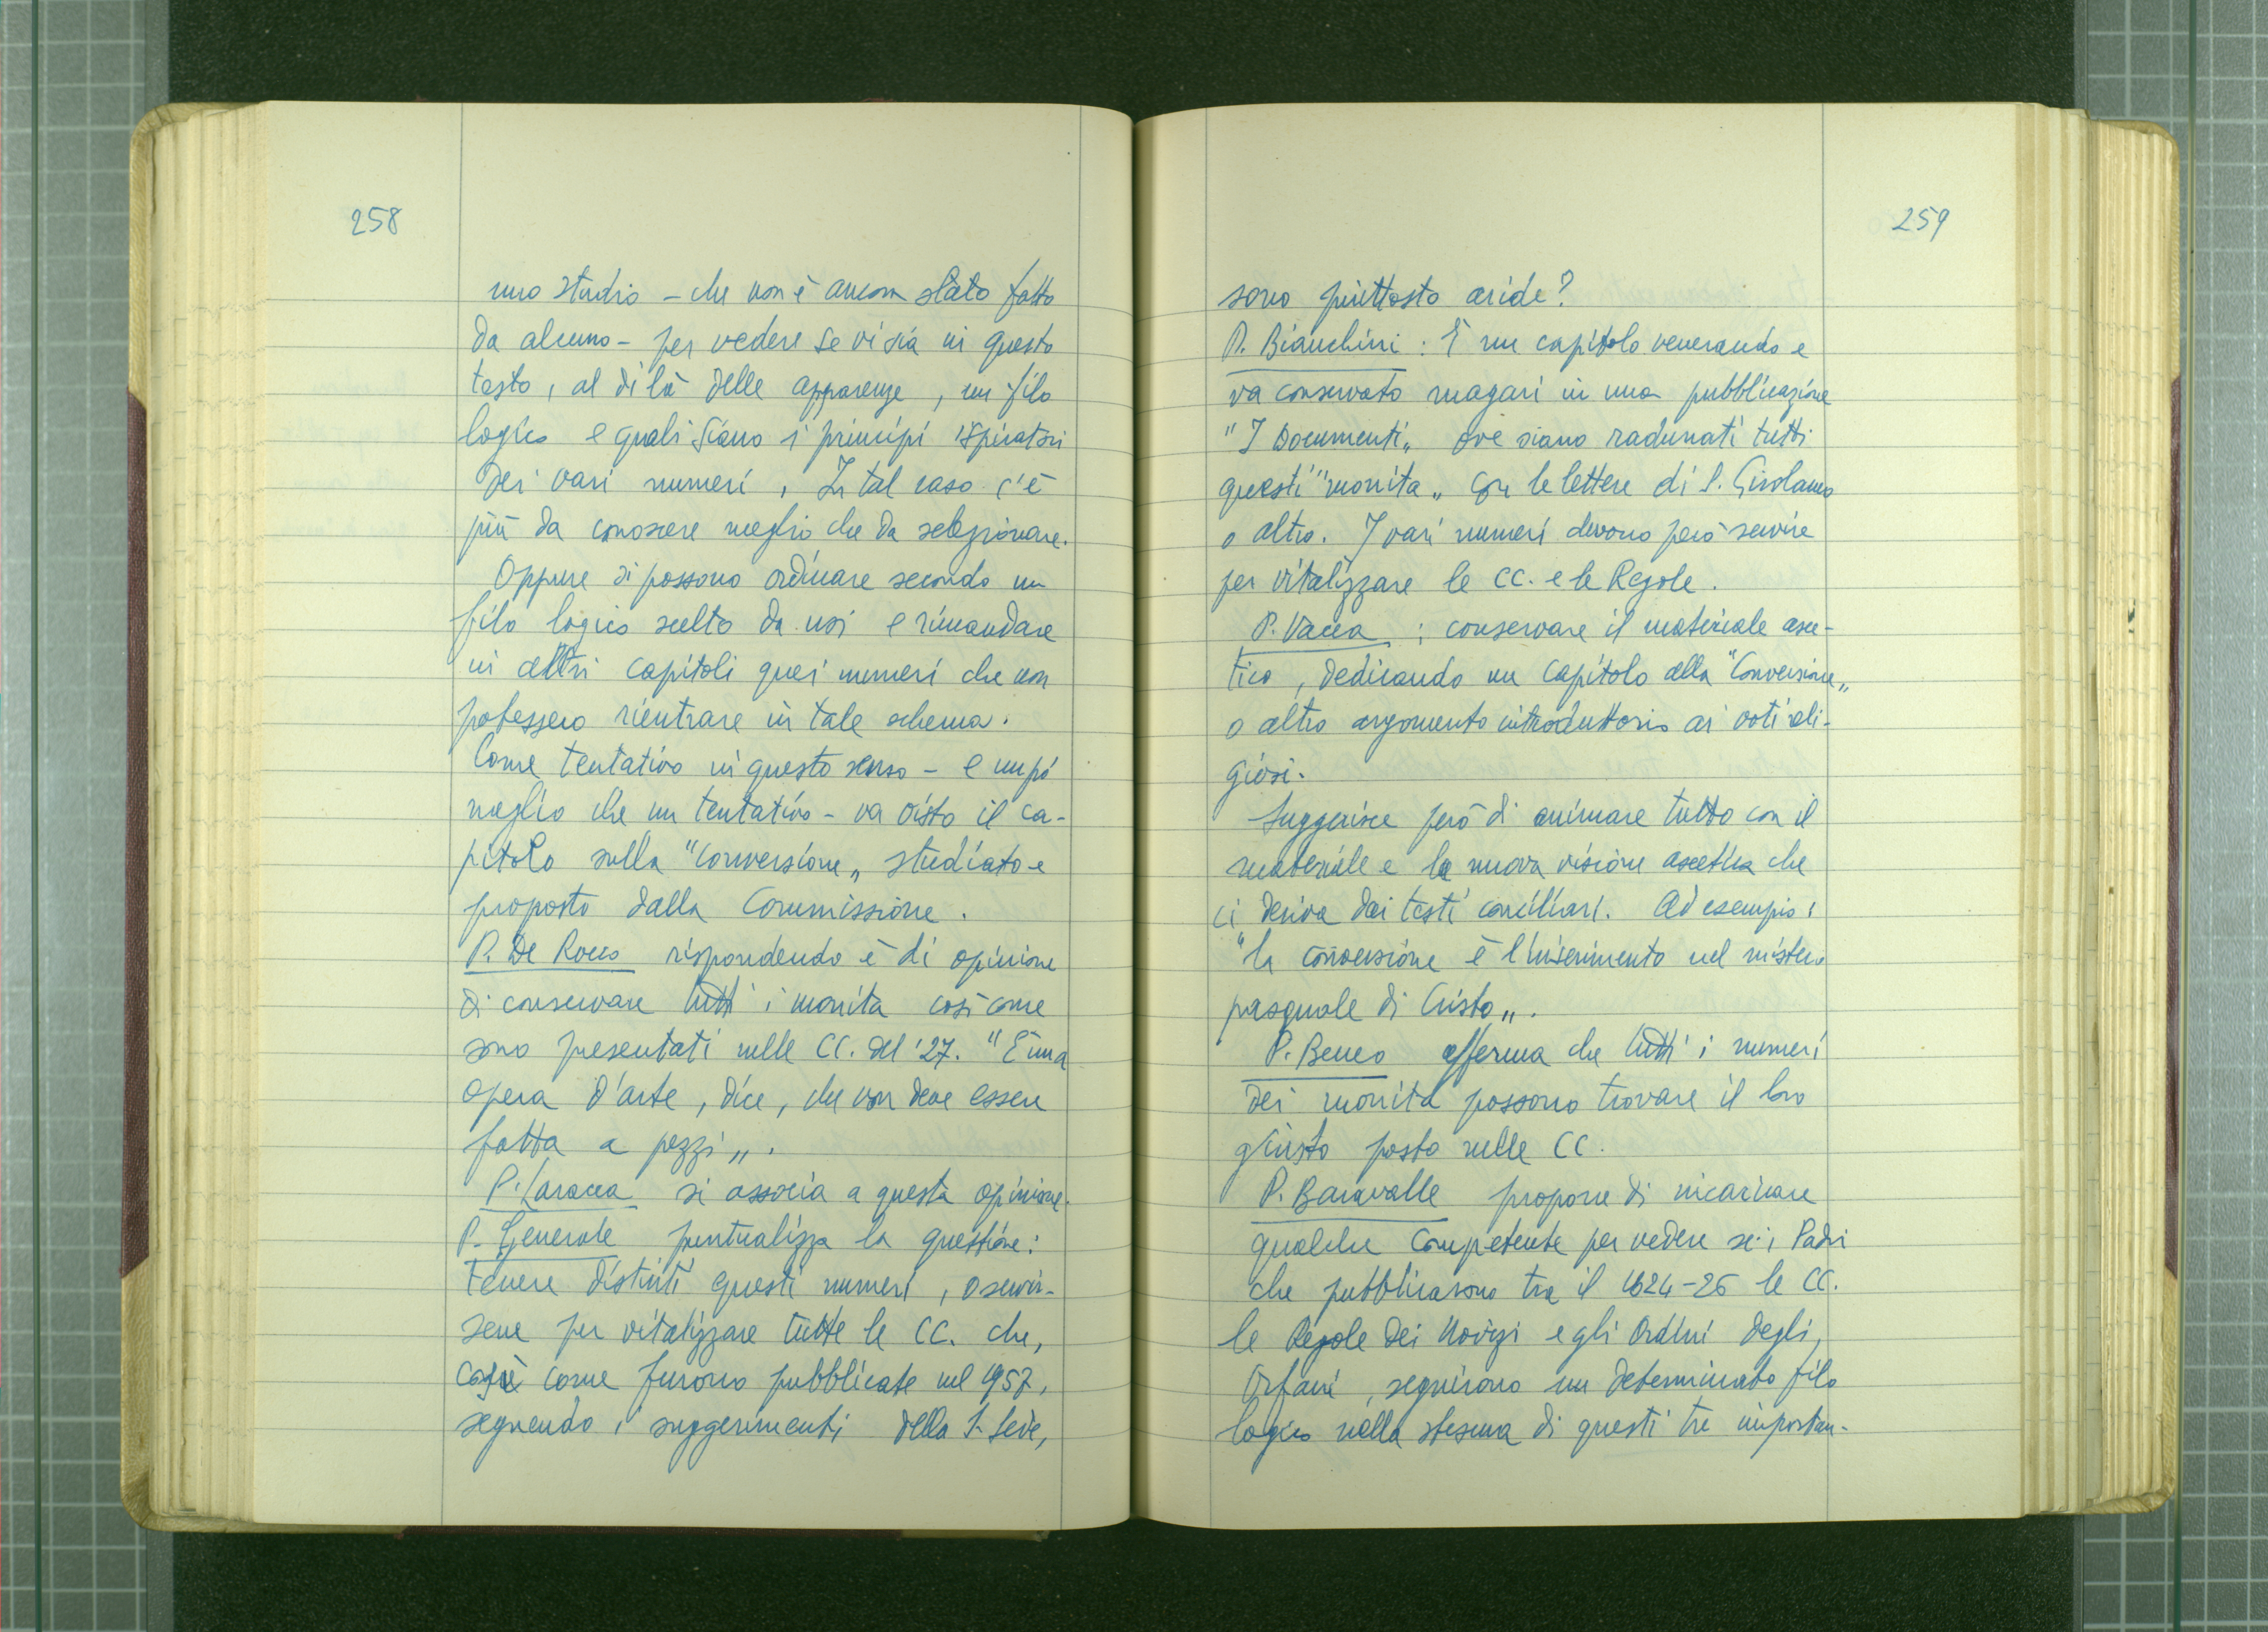 258
uno studio - che non è ancora stato fatto
da alcuno - per vedere se vi sia in questo
testo, al di là delle apparenze, un filo
logico e quali siano i principi ispiratori
dei vari numeri, In tal caso c'è
più da conoscere meglio che da selezionare.
Oppure si possono ordinare secondo un
filo logico scelto da noi e rimandare
in altri capitoli quei numeri che non
potessero rientrare in tale schema.
Come tentativo in questo senso - e un pò
meglio che un tentativo - va visto il ca-
pitolo sulla "conversione„ studiato e
proposto dalla Commissione.
P. De Rocco rispondendo è di opinione
di conservare tutti i monita così come
sono presentati nelle CC. del '27. "È una
opera d'arte, dice, che non deve essere
fatta a pezzi„.
si associa a questa opinione.
P. Generale puntualizza la questione:
tenere distinti questi numeri, o servir-
sene per vitalizzare tutte le CC. che,
così come furono pubblicate nel 1957,
seguendo i suggerimenti della S. Sede,
259
sono piuttosto aride?
P. Bianchini: È un capitolo venerando e
va conservato magari in una pubblicazione
"I Documenti„ ove siano radunati tutti
questi "monita„ con le lettere di S. Girolamo
o altro. I vari numeri devono però servire
per vitalizzare le CC. e le Regole.
P. Vacca: conservare il materiale asce-
tico, dedicando un capitolo alla "Conversione„
o altro argomento introduttorio ai voti reli-
giosi.
Suggerisce però di animare tutto con il
materiale e la nuova visione ascetica che
ci deriva dai testi conciliari. Ad esempio:
"la conversione è l'inserimento nel mistero
pasquale di Cristo„.
P. Beneo afferma che tutti i numeri
dei monita possono trovare il loro
giusto posto nelle CC.
P. Baravalle propone di incaricare
qualche competente per vedere se i Padri
che pubblicarono tra il 1624-26 le CC.
le Regole dei Novizi e gli Ordini degli
Orfani, seguirono un determinato filo
logico nella stesura di questi tre importan-